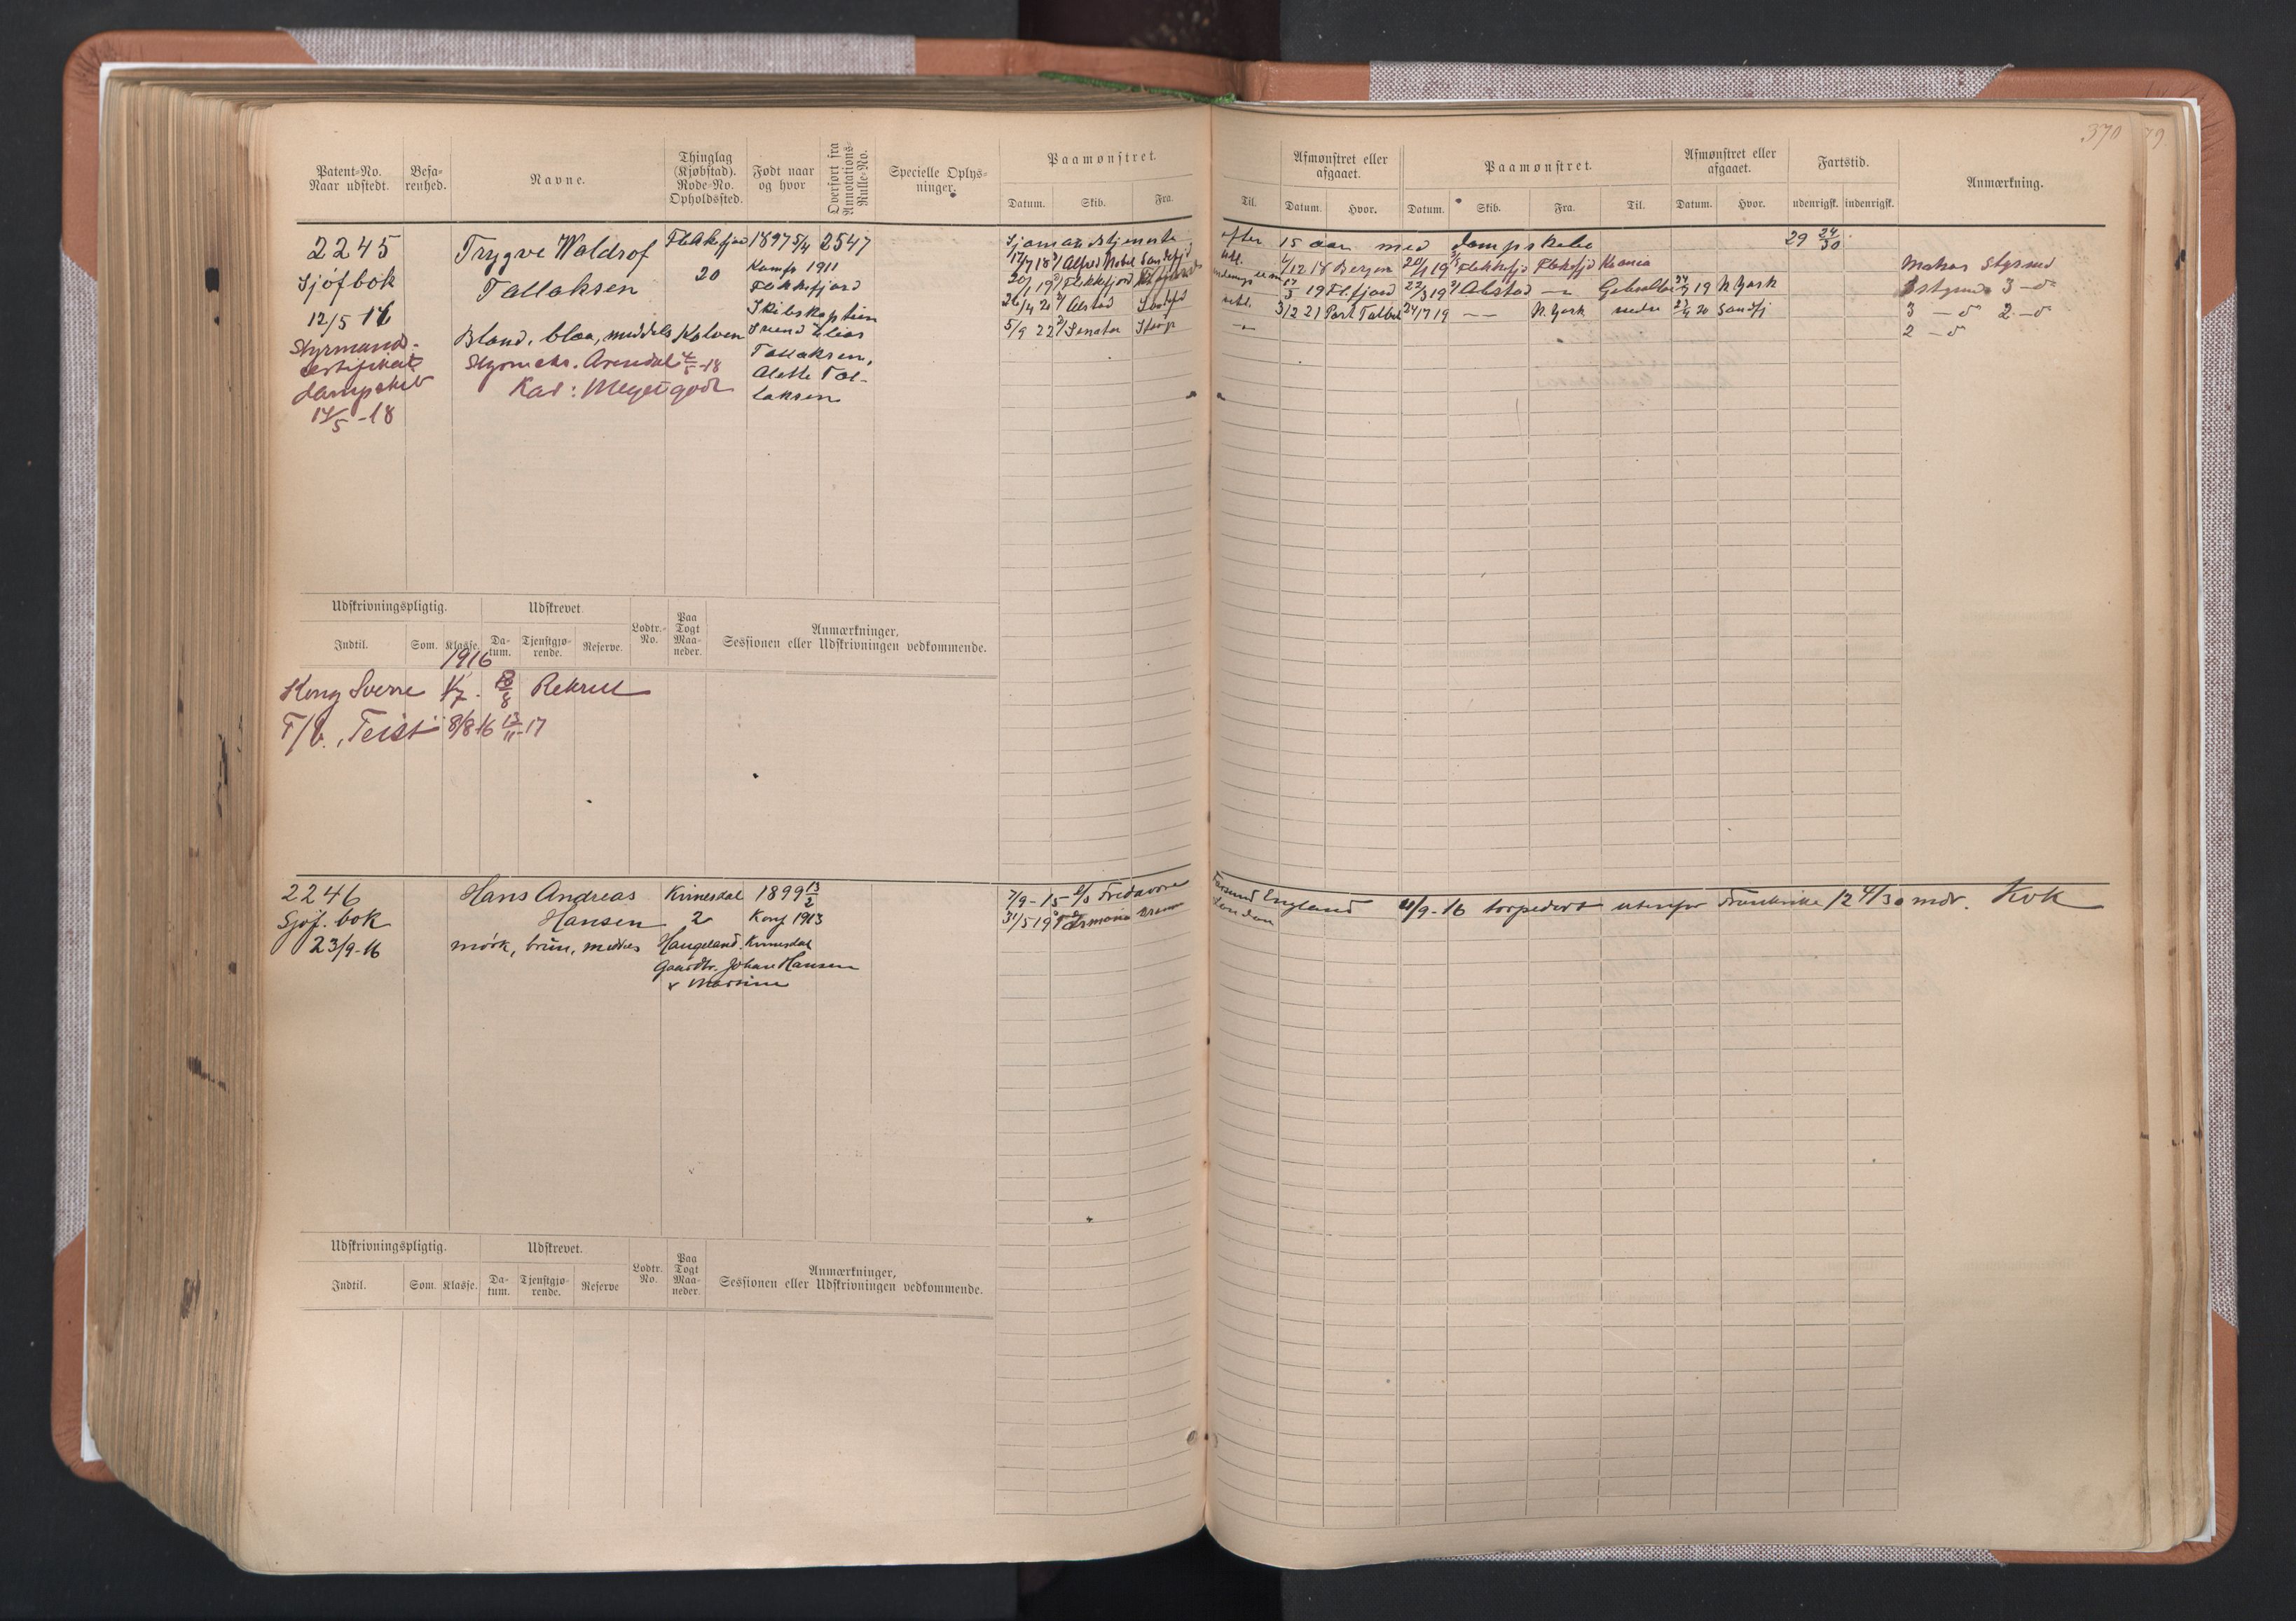 370 79
Patent-No. Naar udstedt. Befa-renhed. Navne. Thinglag (Kjøbstad). Rode-No. Opholdssted. Født naar og hvor Overført fra Annotations-Rulle-No. Specielle Oplys-ninger. Paamønstret. Afmønstret eller afgaaet. Paamønstret. Afmønstret eller afgaaet. Fartstid. Anmærkning.
Datum. Skib. Fra. Til. Datum. Hvor. Datum. Skib. Fra. Til. Datum. Hvor. udenrigsk. indenrigsk.
2245
Sjøfbok
12/5 16
Styrmands-
certifikat
dampskib
14/5-18
Trygve Waldrof
Tallaksen
Blond, blaa, middels
Styrm eks. Arendal 4/5-18
Kar: Meget godt
Flekkefjord
20
Kalven
1897 5/4
Konf 1911
Flekkefjord
Skibskaptein
Svend Elias
Tallaksen,
Alette Tal-
laksen
2547
Sjømandstjeneste efter 15 aar med dampskibe 29 24/30
17/7 18 Alfred Nobel Sandefjd utl. 4/12 18 Bergen 20/1 19 Flekkefjd Flekkefjd Krania Matros Styrmd
20/1 19 Flekkefjord 17/3 19 Fl.fjord 22/3 19 Alstad — Gibraltar 24/7 19 N. York
26/4 20 Alstad Sandfjd utl. 3/2 21 Port Talbot 24/7 19 — N. York 27/4 20 Sandfj 3 — d 2 — d
5/9 22 Senator — 2 — d
Udskrivningspligtig. Udskrevet. Lodtr.-No. Paa Togt Maa-neder. Anmærkninger, Sessionen eller Udskrivningen vedkommende.
Indtil. Som. Klasse. Da-tum. Tjenstgjø-rende. Reserve.
1916
Kong Sverre 1/7. 8/8 Rekrut
T/b. "Teist" 8/8 16 13/11-17
2246
Sjøf. bok
23/9-16
Hans Andreas
Hansen
mørk, brun, middels
Kvinesdal
2
Haugeland
1899 13/2
Konf 1913
Kvinesdal
Gaardbr. Johan Hansen
& Martine
7/9-15 s/s Fredavore Farsund England 4/9-16 torpedert utenfor Frankrike 12 4/30 mdr. Kok
31/5 19 London
Udskrivningspligtig. Udskrevet. Lodtr. No. Paa Togt Maa-neder. Anmærkninger, Sessionen eller Udskrivningen vedkommende.
Indtil. Som. Klasse. Da-tum. Tjenstgjø-rende. Reserve